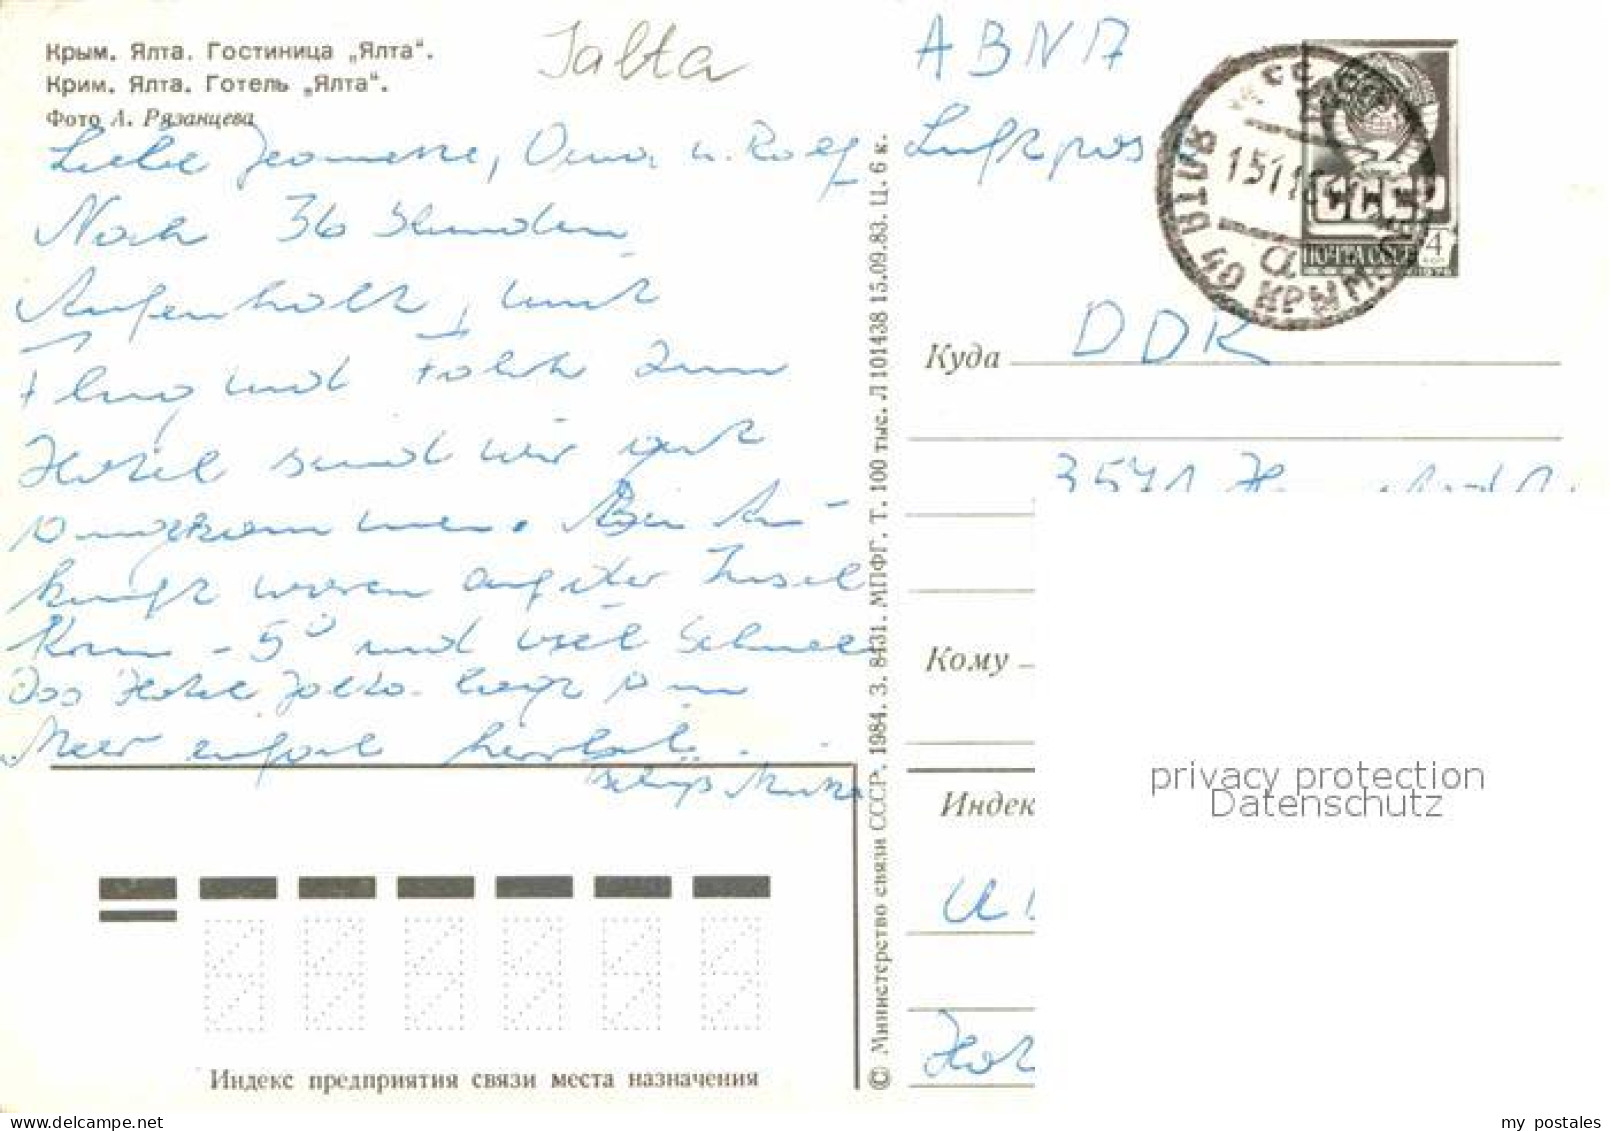 Крым. Ялта. Гостиница „Ялта“.
Крим. Ялта. Готель „Ялта“.
Фото А. Рязанцева
Jalta
Liebe Jeannette, Oma u. Rolf
Nach 36 Stunden
Aufenthalt, mit
Flug und Fahrt zum
Hotel sind wir gut
angekommen. Bei An-
kunft waren auf der Insel
Krim -5° und viel Schnee
Das Hotel Jalta liegt am
Meer einfach herrlich.
© Министерство связи СССР. 1984. З. 8431. МПФГ. Т. 100 тыс. Л 101438 15.09.83. Ц. 6 к.
Luftpos
СССР
ПОЧТА СССР
4
1976
ЯЛТА
40 КРЫМ
Куда
DDR
3571
Кому
Индек
Hot
Индекс предприятия связи места назначения
privacy protection
Datenschutz
my postales